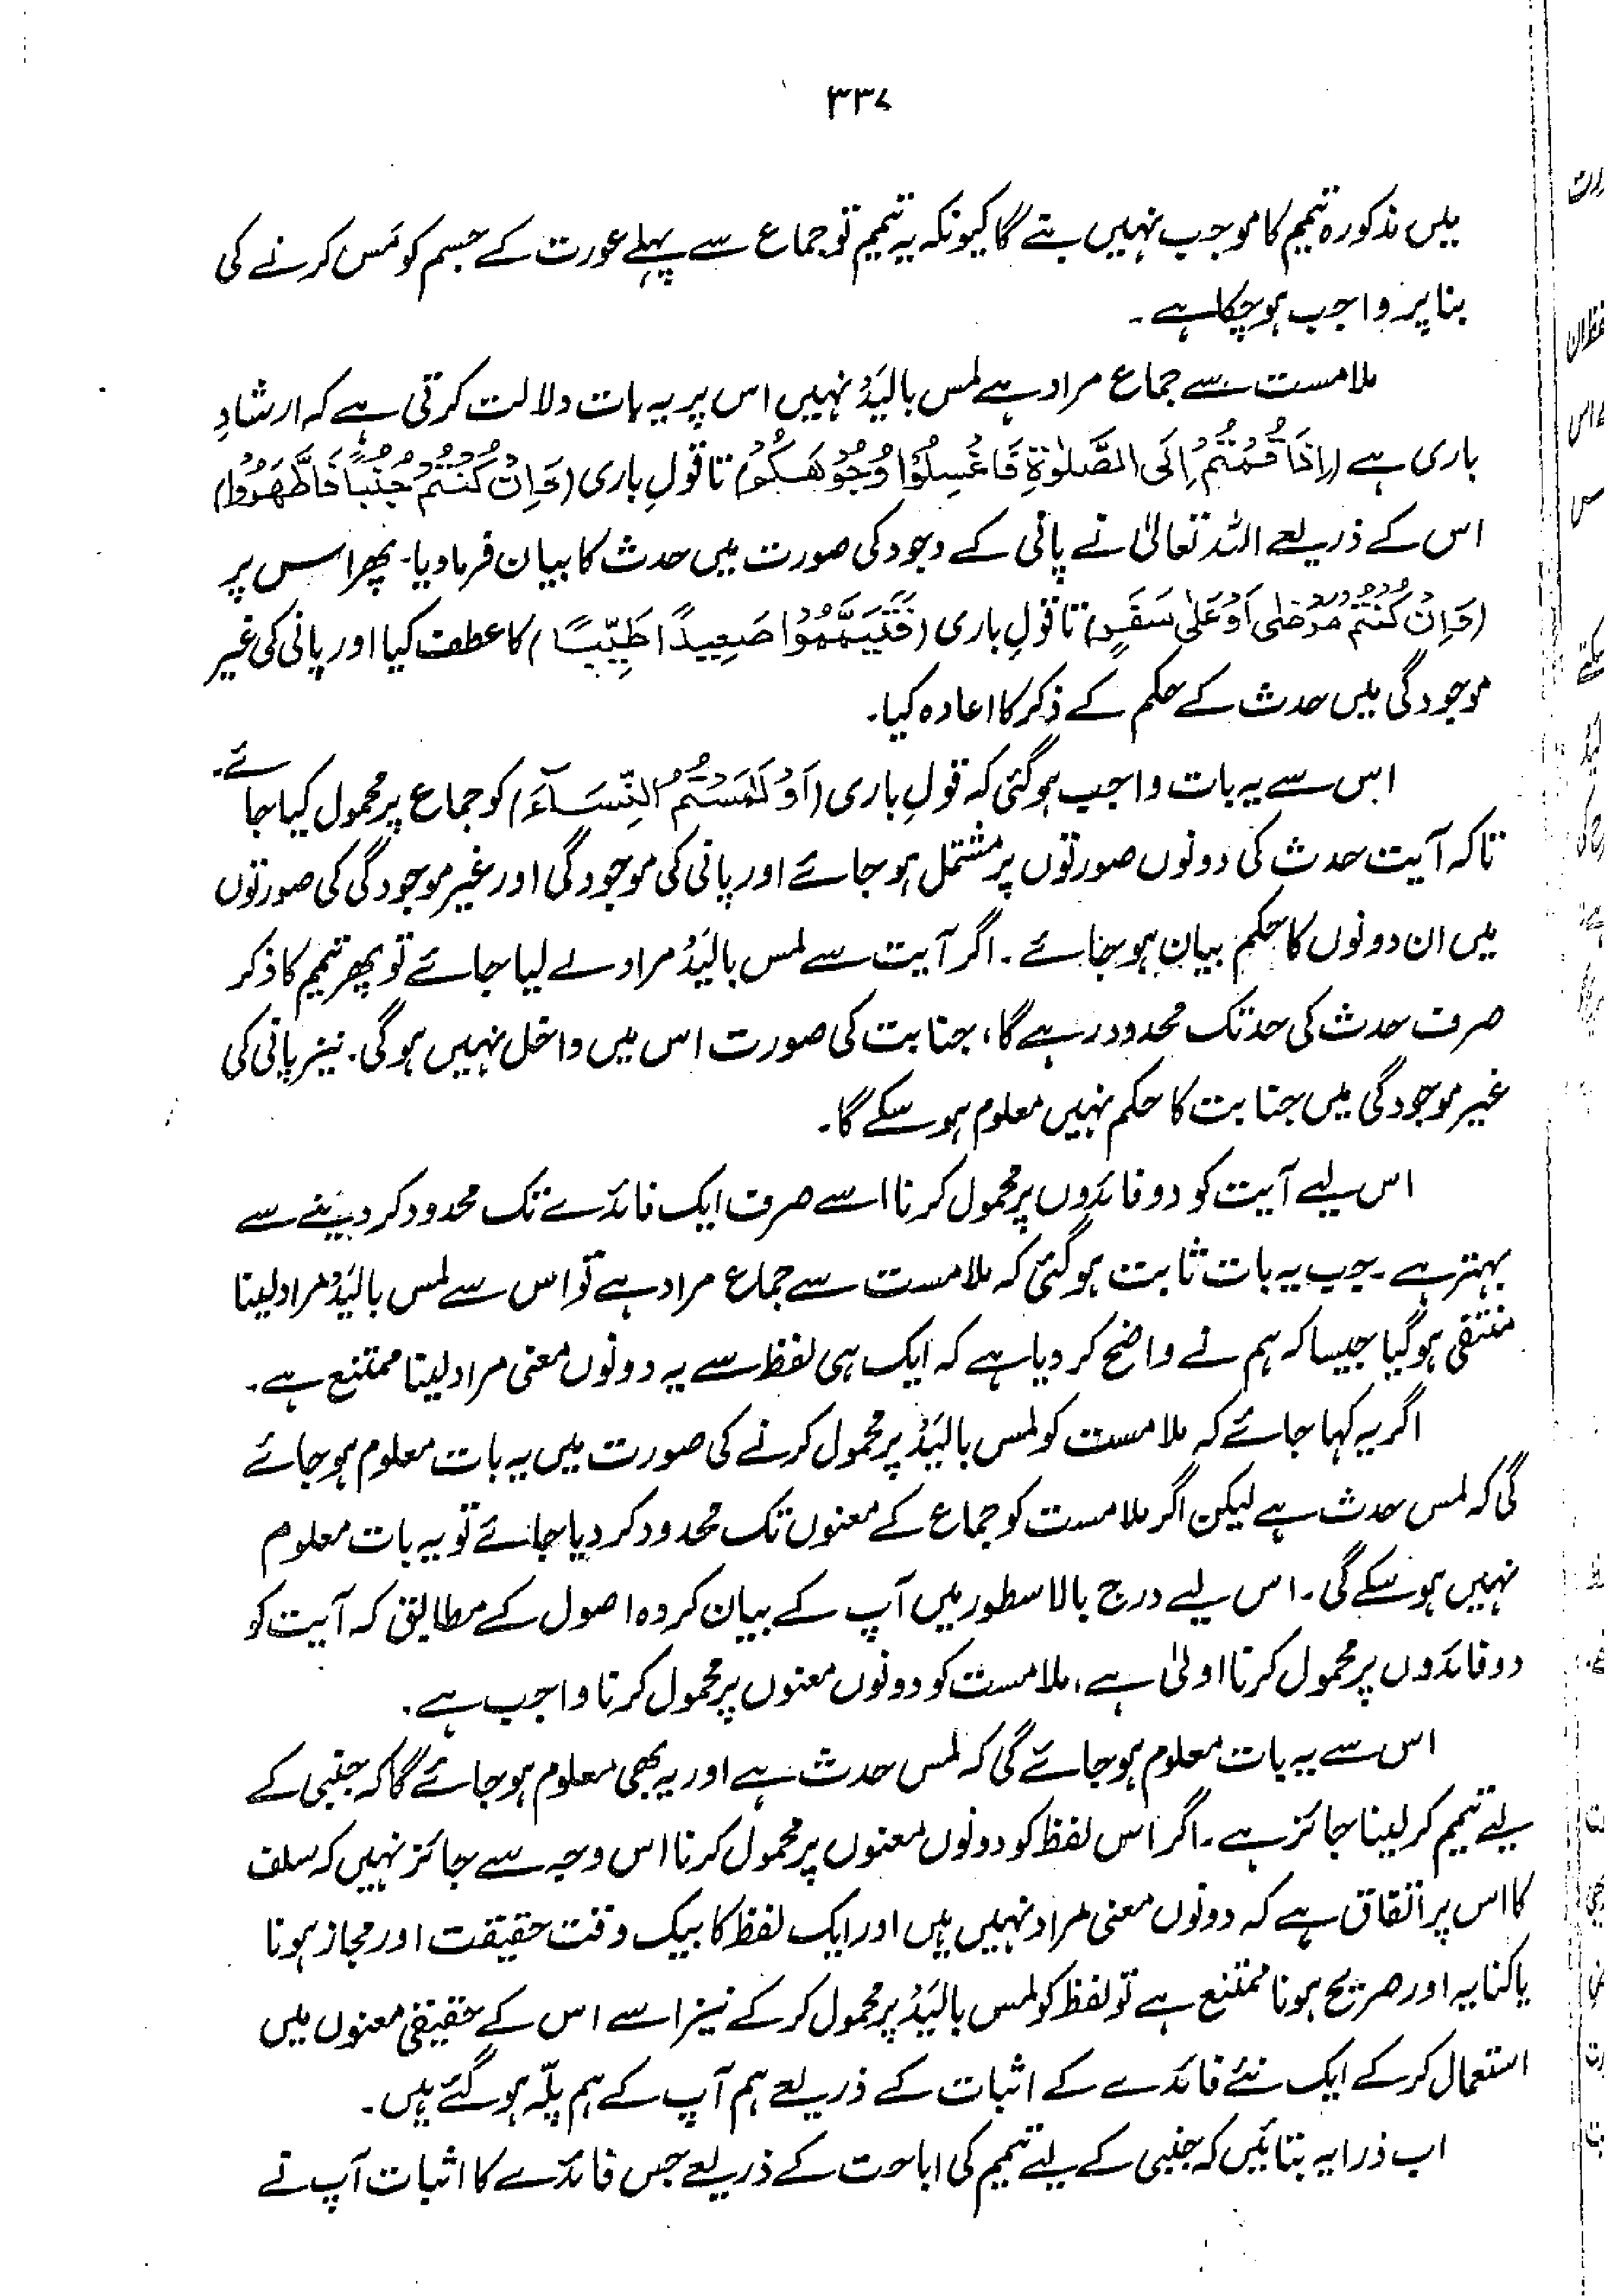 ۳۳۷
میں مذکورہ تیمم کا موجب نہیں بنے گا کیونکہ یہ تیمم تو جماع سے پہلے عورت کے جسم کو مَس کرنے کی
بنا پر واجب ہو چکا ہے۔
ملامست سے جماع مراد ہے لمس بالیَدُ نہیں اس پر یہ بات دلالت کرتی ہے کہ ارشادِ
باری ہے (اِذَا قُمْتُمْ اِلَی الصَّلٰوۃِ فَاغْسِلُوْا وُجُوْھَکُمْ) تا قولِ باری (وَاِنْ کُنْتُمْ جُنُبًا فَاطَّھَّرُوْا)
اس کے ذریعے اللہ تعالیٰ نے پانی کے وجود کی صورت میں حدث کا بیان فرما دیا۔ پھر اس پر
(وَاِنْ کُنْتُمْ مَّرْضٰی اَوْ عَلٰی سَفَرٍ) تا قولِ باری (فَتَیَمَّمُوْا صَعِیْدًا طَیِّبًا) کا عطف کیا اور پانی کی غیر
موجودگی میں حدث کے حکم کے ذکر کا اعادہ کیا۔
اس سے یہ بات واجب ہو گئی کہ قولِ باری (اَوْ لٰمَسْتُمُ النِّسَآءَ) کو جماع پر محمول کیا جائے۔
تاکہ آیت حدث کی دونوں صورتوں پر مشتمل ہو جائے اور پانی کی موجودگی اور غیر موجودگی کی صورتوں
میں ان دونوں کا حکم بیان ہو جائے۔ اگر آیت سے لمس بالیَدُ مراد لے لیا جائے تو پھر تیمم کا ذکر
صرف حدث کی حد تک محدود رہے گا، جنابت کی صورت اس میں داخل نہیں ہو گی۔ نیز پانی کی
غیر موجودگی میں جنابت کا حکم نہیں معلوم ہو سکے گا۔
اس لیے آیت کو دو فائدوں پر محمول کرنا اسے صرف ایک فائدے تک محدود کر دینے سے
بہتر ہے۔ جب یہ بات ثابت ہو گئی کہ ملامست سے جماع مراد ہے تو اس سے لمس بالیَدُ مراد لینا
منتفی ہو گیا جیسا کہ ہم نے واضح کر دیا ہے کہ ایک ہی لفظ سے یہ دونوں معنی مراد لینا ممتنع ہے۔
اگر یہ کہا جائے کہ ملامست کو لمس بالیَدُ پر محمول کرنے کی صورت میں یہ بات معلوم ہو جائے
گی کہ لمس حدث ہے لیکن اگر ملامست کو جماع کے معنوں تک محدود کر دیا جائے تو یہ بات معلوم
نہیں ہو سکے گی۔ اس لیے درج بالا سطور میں آپ کے بیان کردہ اصول کے مطابق کہ آیت کو
دو فائدوں پر محمول کرنا اولیٰ ہے، ملامست کو دونوں معنوں پر محمول کرنا واجب ہے۔
اس سے یہ بات معلوم ہو جائے گی کہ لمس حدث ہے اور یہ بھی معلوم ہو جائے گا کہ جنبی کے
لیے تیمم کر لینا جائز ہے۔ اگر اس لفظ کو دونوں معنوں پر محمول کرنا اس وجہ سے جائز نہیں کہ سلف
کا اس پر اتفاق ہے کہ دونوں معنی مراد نہیں ہیں اور ایک لفظ کا بیک وقت حقیقت اور مجاز ہونا
یا کنایہ اور صریح ہونا ممتنع ہے تو لفظ کو لمس بالیَدُ پر محمول کر کے نیز اسے اس کے حقیقی معنوں میں
استعمال کر کے ایک نئے فائدے کے اثبات کے ذریعے ہم آپ کے ہم پلّہ ہو گئے ہیں۔
اب ذرا یہ بتائیں کہ جنبی کے لیے تیمم کی اباحت کے ذریعے جس فائدے کا اثبات آپ نے